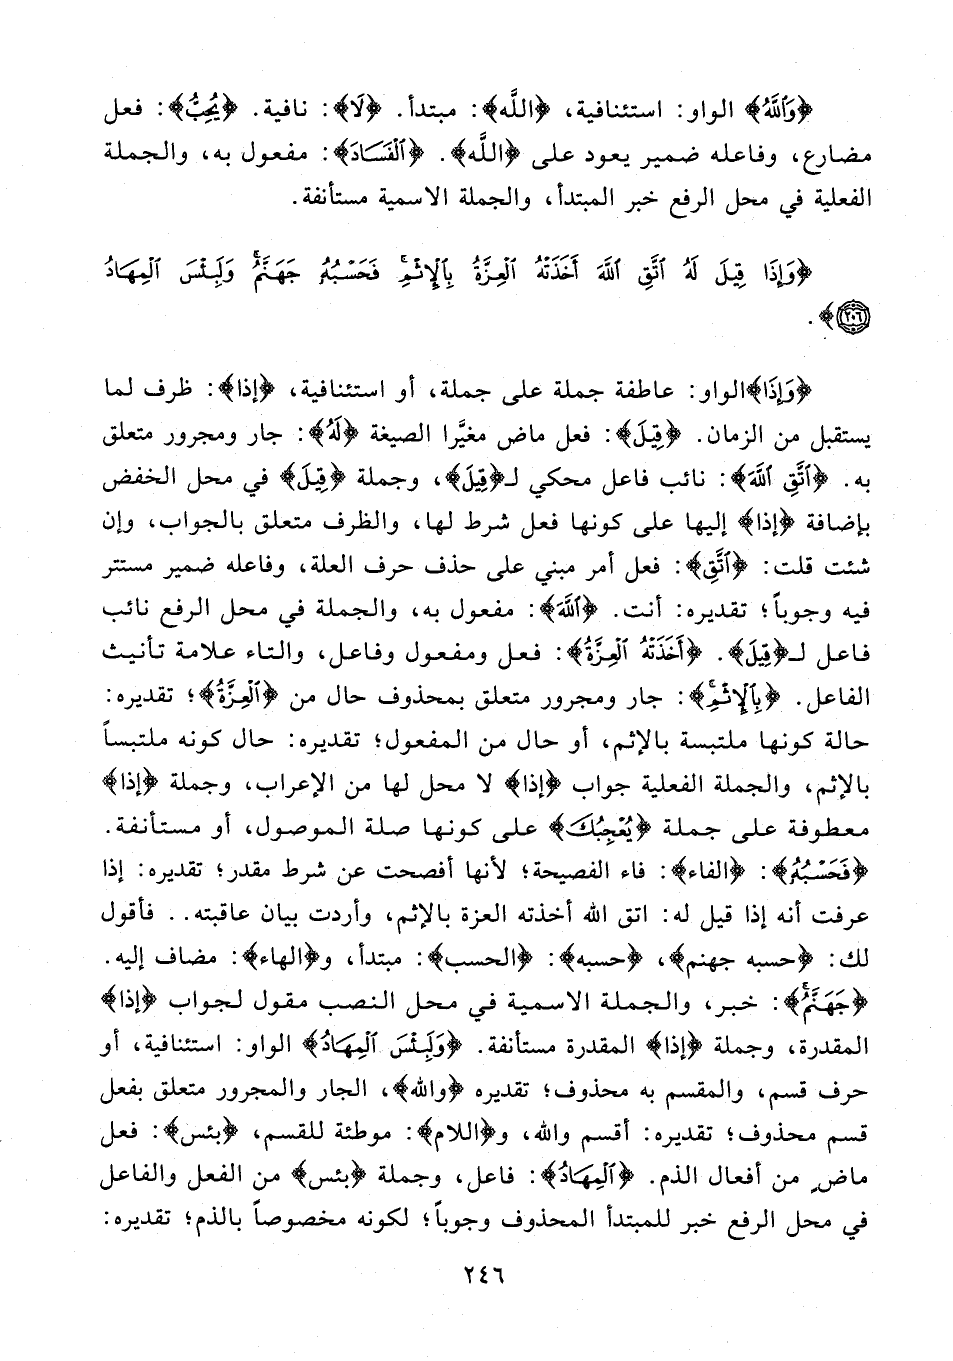 ﴿وَاللَّهُ﴾ الواو: استئنافية، ﴿اللَّه﴾: مبتدأ. ﴿لَا﴾: نافية. ﴿يُحِبُّ﴾: فعل
مضارع، وفاعله ضمير يعود على ﴿اللَّه﴾. ﴿الْفَسَادَ﴾: مفعول به، والجملة
الفعلية في محل الرفع خبر المبتدأ، والجملة الاسمية مستأنفة.
﴿وَإِذَا قِيلَ لَهُ اتَّقِ اللَّهَ أَخَذَتْهُ الْعِزَّةُ بِالْإِثْمِۚ فَحَسْبُهُ جَهَنَّمُۚ وَلَبِئْسَ الْمِهَادُ
٢٠٦﴾.
﴿وَإِذَا﴾الواو: عاطفة جملة على جملة، أو استئنافية، ﴿إذا﴾: ظرف لما
يستقبل من الزمان. ﴿قِيلَ﴾: فعل ماض مغيَّرا الصيغة ﴿لَهُ﴾: جار ومجرور متعلق
به. ﴿اتَّقِ اللَّهَ﴾: نائب فاعل محكي لـ﴿قِيلَ﴾، وجملة ﴿قِيلَ﴾ في محل الخفض
بإضافة ﴿إذا﴾ إليها على كونها فعل شرط لها، والظرف متعلق بالجواب، وإن
شئت قلت: ﴿اتَّقِ﴾: فعل أمر مبني على حذف حرف العلة، وفاعله ضمير مستتر
فيه وجوباً؛ تقديره: أنت. ﴿اللَّهَ﴾: مفعول به، والجملة في محل الرفع نائب
فاعل لـ﴿قِيلَ﴾. ﴿أَخَذَتْهُ الْعِزَّةُ﴾: فعل ومفعول وفاعل، والتاء علامة تأنيث
الفاعل. ﴿بِالْإِثْمِۚ﴾: جار ومجرور متعلق بمحذوف حال من ﴿الْعِزَّةُ﴾؛ تقديره:
حالة كونها ملتبسة بالإثم، أو حال من المفعول؛ تقديره: حال كونه ملتبساً
بالإثم، والجملة الفعلية جواب ﴿إذا﴾ لا محل لها من الإعراب، وجملة ﴿إذا﴾
معطوفة على جملة ﴿يُعْجِبُكَ﴾ على كونها صلة الموصول، أو مستأنفة.
﴿فَحَسْبُهُ﴾: ﴿الفاء﴾: فاء الفصيحة؛ لأنها أفصحت عن شرط مقدر؛ تقديره: إذا
عرفت أنه إذا قيل له: اتق الله أخذته العزة بالإثم، وأردت بيان عاقبته.. فأقول
لك: ﴿حسبه جهنم﴾، ﴿حسبه﴾: ﴿الحسب﴾: مبتدأ، و﴿الهاء﴾: مضاف إليه.
﴿جَهَنَّمُۚ﴾: خبر، والجملة الاسمية في محل النصب مقول لجواب ﴿إذا﴾
المقدرة، وجملة ﴿إذا﴾ المقدرة مستأنفة. ﴿وَلَبِئْسَ الْمِهَادُ﴾ الواو: استئنافية، أو
حرف قسم، والمقسم به محذوف؛ تقديره ﴿والله﴾، الجار والمجرور متعلق بفعل
قسم محذوف؛ تقديره: أقسم والله، و﴿اللام﴾: موطئة للقسم، ﴿بئس﴾: فعل
ماضٍ من أفعال الذم. ﴿الْمِهَادُ﴾: فاعل، وجملة ﴿بئس﴾ من الفعل والفاعل
في محل الرفع خبر للمبتدأ المحذوف وجوباً؛ لكونه مخصوصاً بالذم؛ تقديره:
٢٤٦